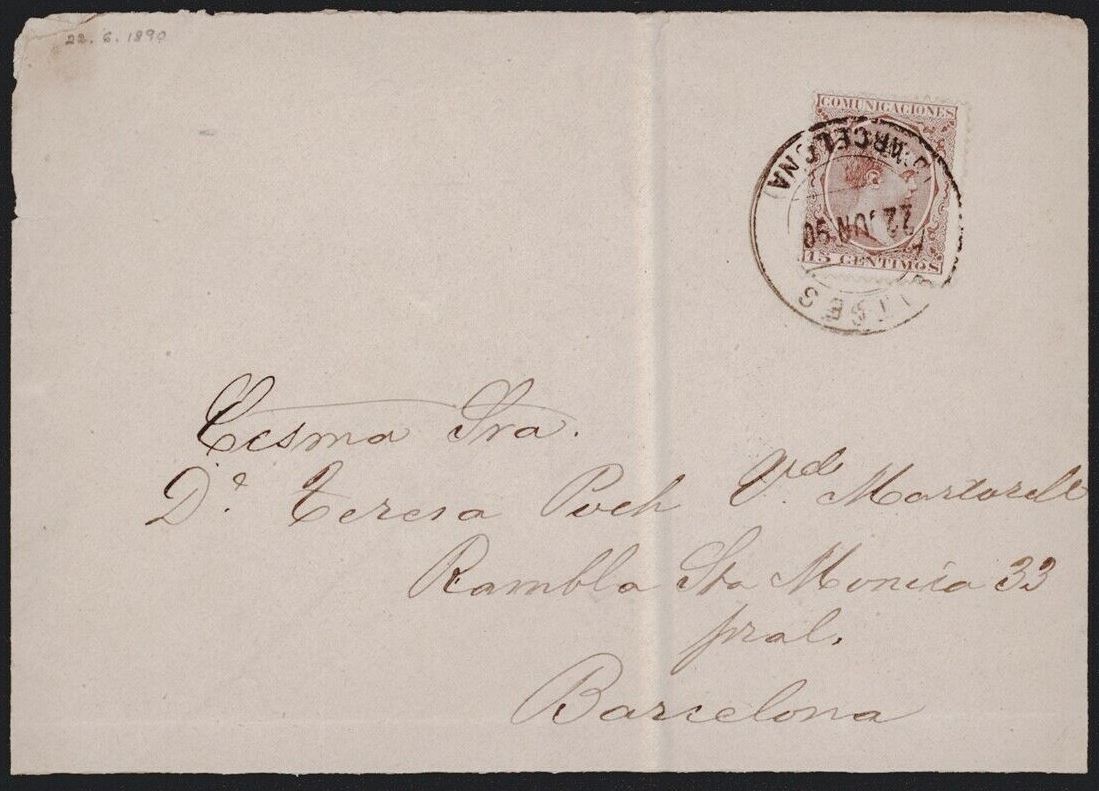 22. 6. 1890
COMUNICACIONES
(BARCELONA)
22 JUN 90
15 CENTIMOS
Sra.
D.ª Teresa Puch V.da Martorell
Rambla Sta Monica 33
pral.
Barcelona